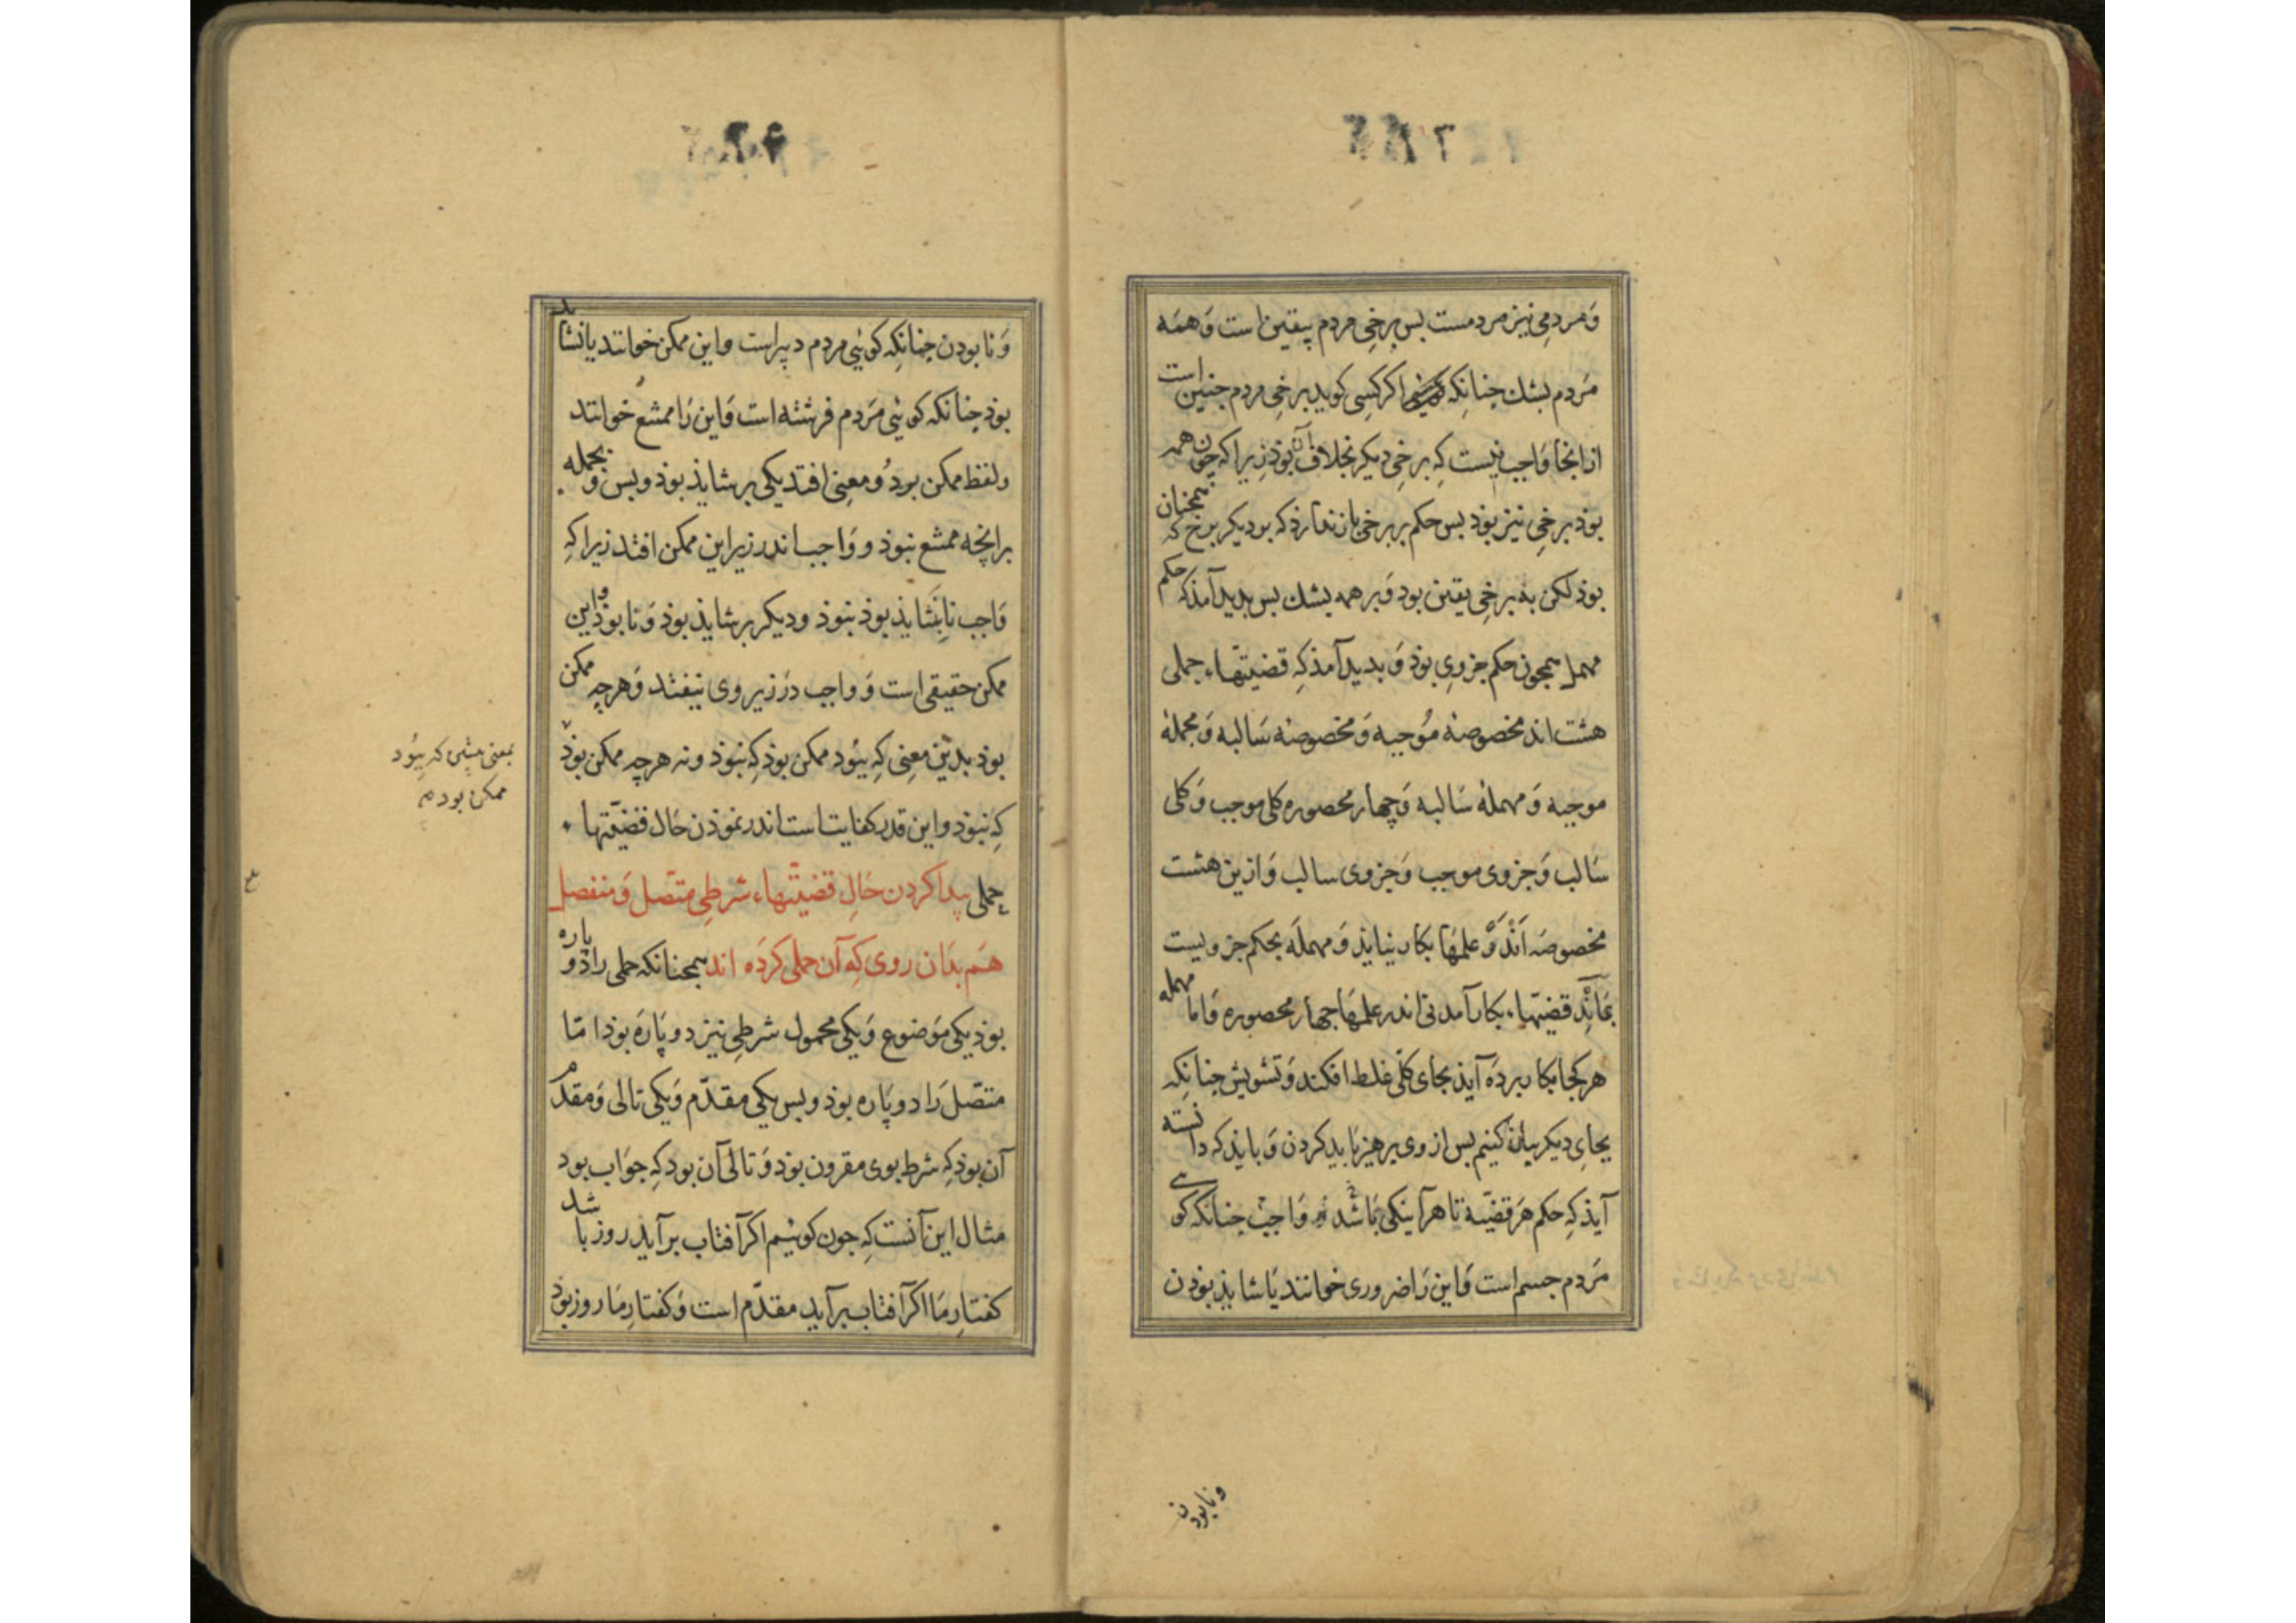 وَمردمی نیز مردمست بس برخی مردم بیقین است وَهمَه
مَردم بشك جنانکه اکر کسی کوید برخی مردم جنین است
از انجا وَاجب نیست کِه برخی دیکر بخلاف آن بوذ زیرا کِه جون همه
بوذ برخی نیز بوذ بس حکم بر برخی بازندارذ که بر دیکر برخ که همجنان
بوذ لکن به برخی یقین بود وَبر همه بشك بس بدید آمذ که حکم
مهمل همجون حکم جزوی بوذ وَ بدید آمذ کِه قضیّتهاء حملی
هشت اند مخصوصهٔ مُوجبه وَمخصوصهٔ سَالبه وَمجملهٔ
موجبه وَ مهملهٔ سَالبه وَچهار محصوره کلی موجب وَکلی
سَالب وَجزوی موجب وَجزوی سالب وَازین هشت
مخصوصه اَندَر علمهَا بکار نیایذ وَمهملَه بحکم جزویست
بمَانَد قضیّتهاء بکار آمدنی اندر علمهَا جهار محصوره وَاما مهمله
هر کجا بکار بردَه آیذ بجای کلّی غلط افکند وَتشویش جنانکِه
بجایِ دیکر بیان کنیم بس از وی برهیز بَاید کردن وَبایذ که دانسته
آیذ کِه حکم هَر قضیّة تا هرآینکی بَاشَد وَاجب جنانکه کوی
مَردم جسم است وَاین رَا ضروری خوانند یَا شایذ بوذن
ونابودن
وَنابودن جنانکِه کوئی مردم دبیراست واین ممکن خوانند یا نشاید
بوذ جنانکه کوئی مَردم فرشته است وَاین رَا ممتنع خوانند
ولفظ ممکن بر دُو معنی افتد یکی بر شایذ بوذ وبس و بجمله
بر انچه ممتنع نبوذ و وَاجب اندر زیر این ممکن افتد زیرا کِه
وَاجب نابشایذ بوذ نبوذ ودیکر بر شایذ بوذ وَ نا بوذ واین
ممکن حقیقی است وَ واجب دَر زیر وی نیفتد وَهرچه ممکن
بوذ بدین معنی کِه ببُود ممکن بوذ کِه نبوذ ونه هرچه ممکن بوذ
بمعنی بیشین که ببُود
ممکن بود م
کِه نبوذ واین قدر کفایت است اندر نموذن حَال قضیّتهاء
حملی پیدا کردن حَالِ قضیّتهاء شرطی متّصل وَمنفصل
هَم بدَان روی کِه آن حملی کردَه اند همجنانکه حملی را دو پاره
بوذ یکی مَوضوع وَیکی محمول شرطی نیز دو پَارَه بوذ امّا
متّصل رَا دو پَاره بوذ وبس یکی مقدّم وَیکی تالی وَمقدم
آن بوذ کِه شرط بوی مقرون بوذ وَتالی آن بود کِه جوَاب بود
مثال این آنست کِه جون کوئیم اکر آفتاب برآید روز باشد
کفتارِ مَا اکر آفتاب برآید مقدّم است وَکفتارِ مَا روز بوذ